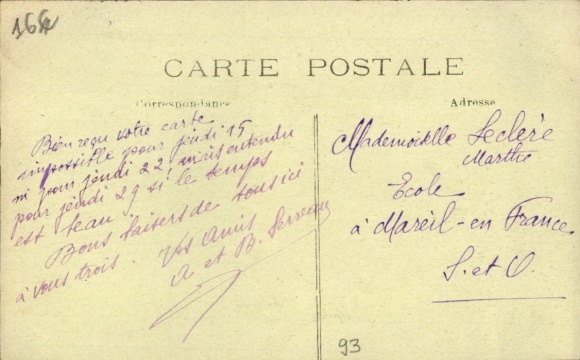 164
CARTE POSTALE
Correspondance
Adresse
Bien reçu votre carte
impossible pour jeudi 15
ni pour jeudi 22 mais entendu
pour jeudi 29 si le temps
est beau
Bons baisers de tous ici
à vous trois. Vos amis
A. et B.
Mademoiselle Leclère
Marthe
Ecole
à Mareil-en-France
S. et O.
93